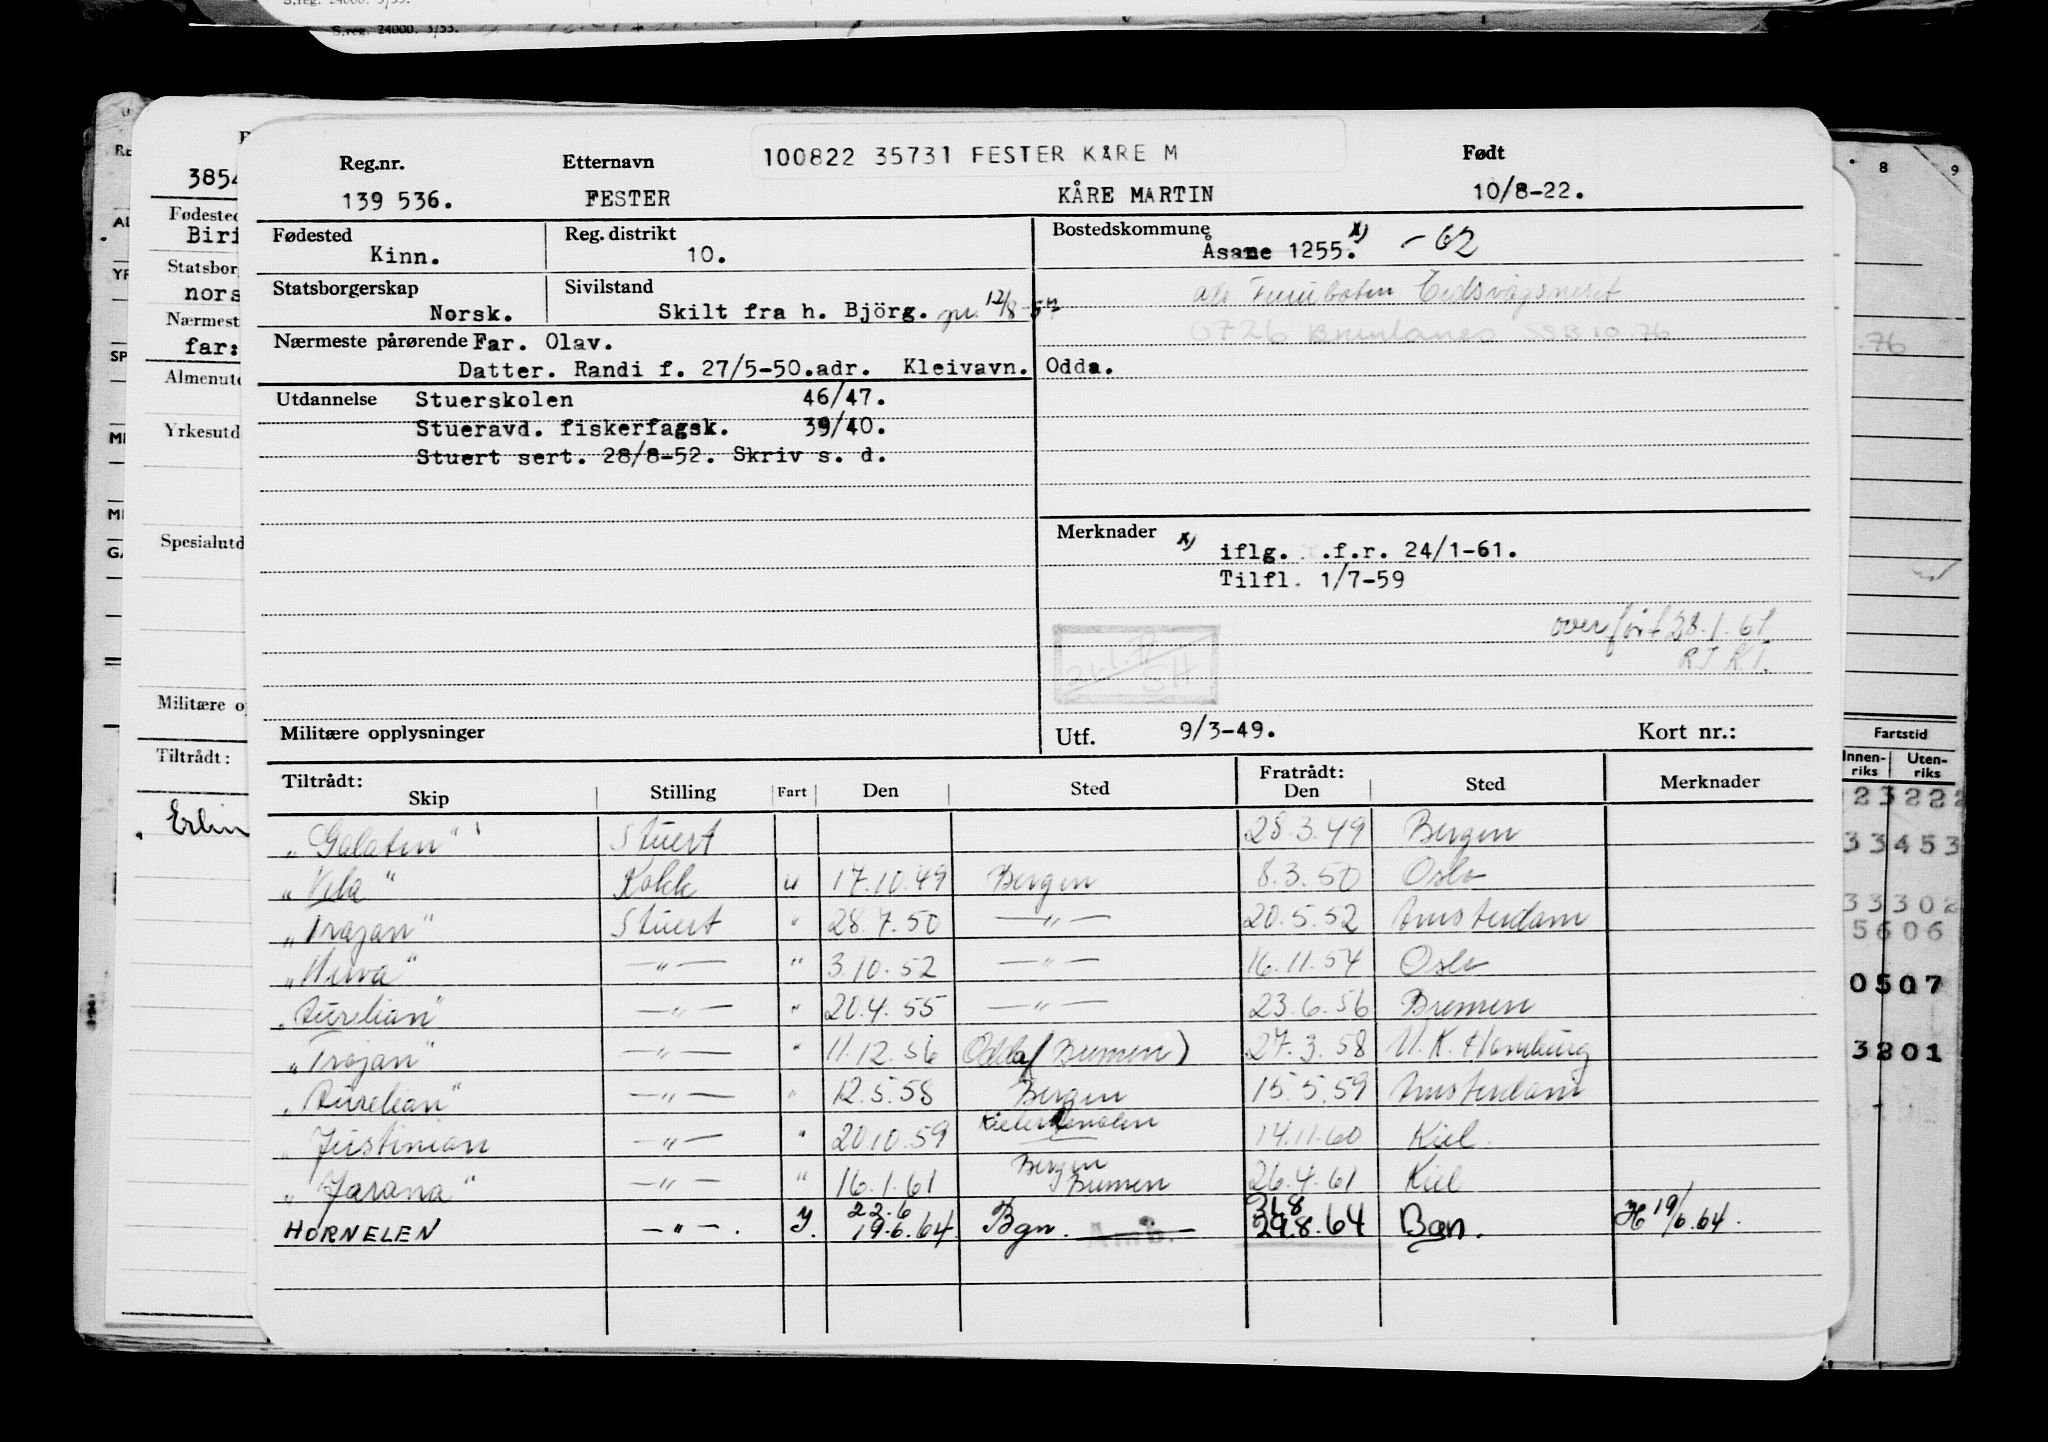 S.reg. 24000. 3/53.
100822 35731 FESTER KÅRE M
Reg.nr. Etternavn Født
139 536. FESTER KÅRE MARTIN 10/8-22.
Fødested Reg. distrikt Bostedskommune
Kinn. 10. Åsane 1255. x) -62
Statsborgerskap Sivilstand
Norsk. Skilt fra h. Björg. 12/8
0726 SSB 10.76
Nærmeste pårørende Far. Olav.
Datter. Randi f. 27/5-50.adr. Kleivavn. Odda.
Utdannelse Stuerskolen 46/47.
Stueravd. fiskerfagsk. 39/40.
Stuert sert. 28/8-52. Skriv s. d.
Merknader x) iflg. .f.r. 24/1-61.
Tilfl. 1/7-59
overført 28.1.61
Militære opplysninger Utf. 9/3-49. Kort nr.:
Tiltrådt: Fratrådt:
Skip Stilling Fart Den Sted Den Sted Merknader
"Galaten" Stuert 28.3.49 Bergen
"Vela" Kokk u 17.10.49 Bergen 8.3.50 Oslo
"Trajan" Stuert " 28.7.50 —"— 20.5.52 Amsterdam
—"— " 3.10.52 —"— 16.11.54 Oslo
"Aurelian" —"— " 20.4.55 —"— 23.6.56 Bremen
"Trajan" —"— " 11.12.56 Odda (Bremen) 27.3.58 U.K. Hamburg
"Aurelian" —"— " 12.5.58 Bergen 15.5.59 Amsterdam
"Justinian —"— " 20.10.59 Kielerkanalen 14.11.60 Kiel.
"Jarana" —"— " 16.1.61 Bergen Bremen 26.4.61 Kiel
22.6 31.8
HORNELEN —"—. 19.6.64. Bgn. Amb. 29.8.64 Bgn. H 19/6.64.
3854
Fødested
Biri
Statsbor
nors
Nærmest
far:
Almenut
Yrkesutd
Spesialutd
Militære op
Tiltrådt:
Erlin
8 9
.76
Fartstid
Innen- Uten-
riks riks
0507
3201